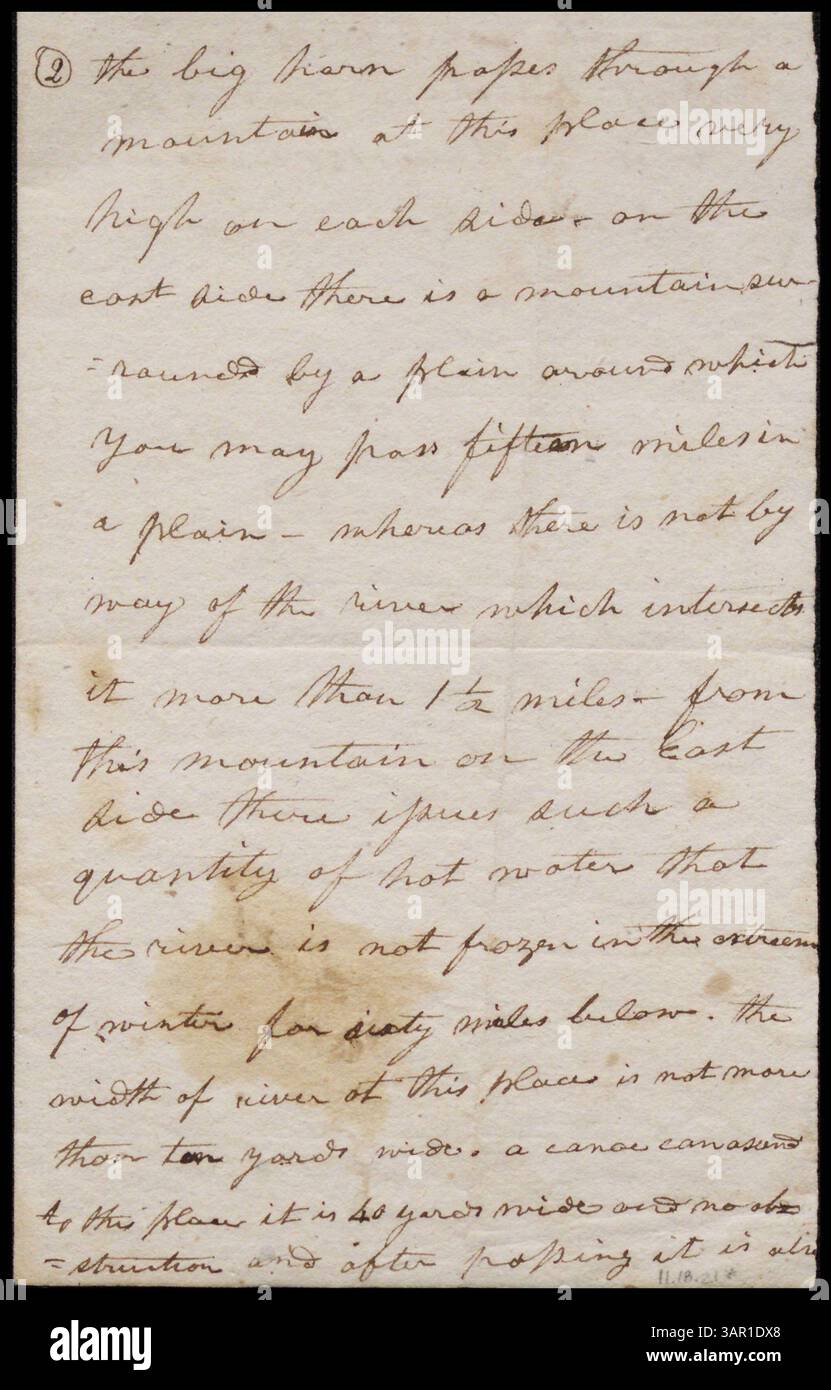 ② the big horn passes through a
mountain at this place very
high on each side - on the
east side there is a mountain sur-
=round by a plain around which
you may pass fifteen miles in
a plain - whereas there is not by
way of the river which intersects
it more than 1 1/2 miles - from
this mountain on the East
side there issues such a
quantity of hot water that
the river is not frozen in the extreem
of winter for sixty miles below. the
width of river at this place is not more
than ten yards wide. a canoe can asend
to this place it is 40 yards wide and no ob=
=struction and after passing it is
11.18.21
alamy
Image ID: 3AR1DX8
www.alamy.com